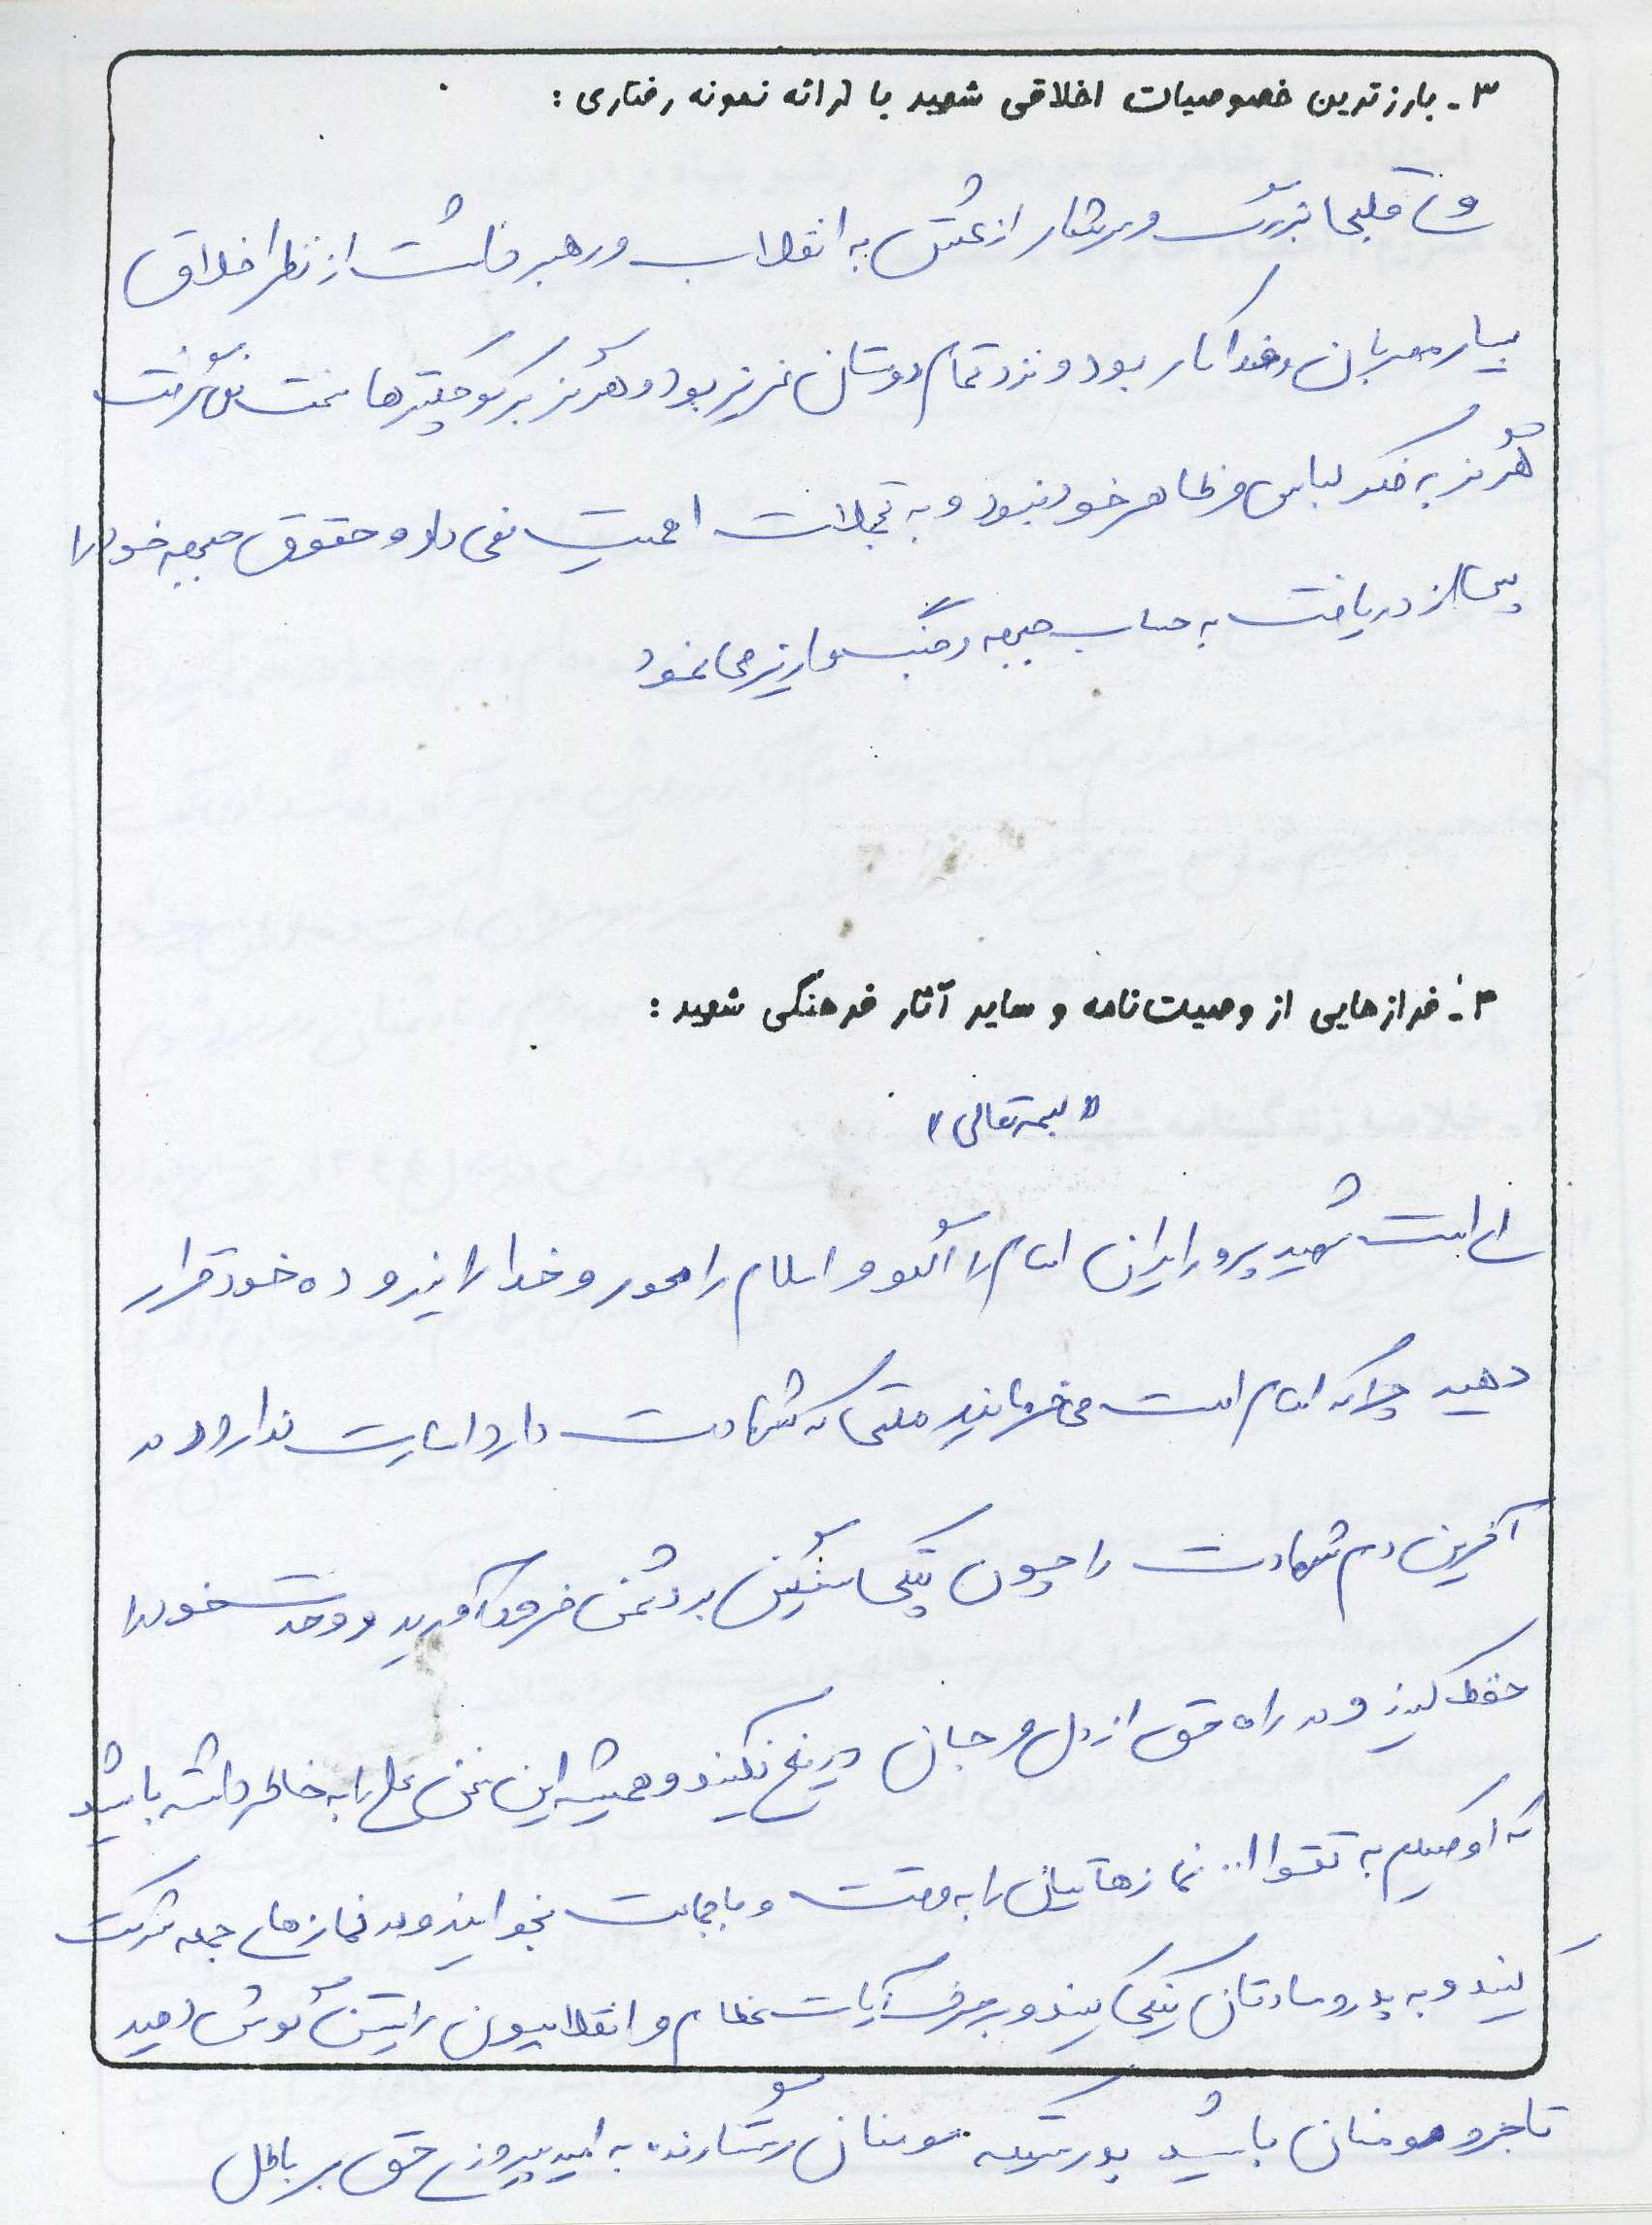 ۳- بارزترین خصوصیات اخلاقی شهید با ارائه نمونه رفتاری :
وی قلبی بزرگ و سرشار از عشق به انقلاب و رهبر داشت از نظر اخلاق
بسیار مهربان و فداکار بود و نزد تمام دوستان عزیز بود و هرگز بر کوچکترها سخت نمی گرفت
هرگز به فکر لباس و ظاهر خود نبود و به تجملات اهمیت نمی داد و حقوق جبهه خود را
پس از دریافت به حساب جبهه و جنگ واریز می نمود
۴- فرازهایی از وصیت‌نامه و سایر آثار فرهنگی شهید :
« بسمه تعالی »
ای امت شهید پرور ایران امام را الگو و اسلام را محور و خدا را نیرو ده خود قرار
دهید چرا که امام امت می فرمایند ملتی که شهادت دارد اسارت ندارد در
آخرین دم شهادت را چون پتکی سنگین بر دشمن فرود آورید و وحدت خود را
حفظ کنید و در راه حق از دل و جان دریغ نکنید و همیشه این سخن علی را به خاطر داشته باشید
که اوصیکم به تقوا ا.. نمازهایتان را به وقت و با جماعت بخوانید و در نمازهای جمعه شرکت
کنید و به پدر و مادرتان نیکی کنید و بر حرف آیات عظام و انقلابیون راستین گوش دهید
تا جزو مومنان باشید بدرستیکه مومنان رستگارند. به امید پیروزی حق بر باطل